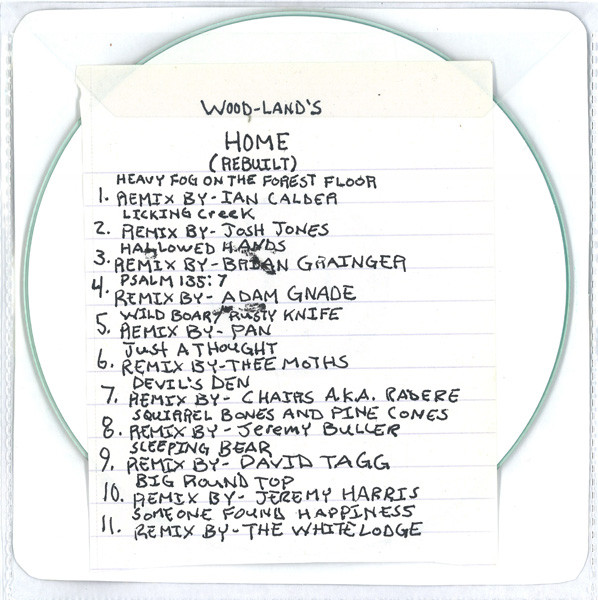 WOOD-LAND'S
HOME
(REBUILT)
HEAVY FOG ON THE FOREST FLOOR
1. REMIX BY- IAN CALDER
LICKING CREEK
2. REMIX BY- JOSH JONES
HALLOWED HANDS
3. REMIX BY- BRIAN GRAINGER
PSALM 135:7
4. REMIX BY- ADAM GNADE
WILD BOAR/ RUSTY KNIFE
5. REMIX BY- PAN
JUST A THOUGHT
6. REMIX BY- THEE MOTHS
DEVIL'S DEN
7. REMIX BY- CHAIRS A.K.A. RADERE
SQUIRREL BONES AND PINE CONES
8. REMIX BY- JEREMY BULLER
SLEEPING BEAR
9. REMIX BY- DAVID TAGG
BIG ROUND TOP
10. REMIX BY- JEREMY HARRIS
SOMEONE FOUND HAPPINESS
11. REMIX BY- THE WHITE LODGE